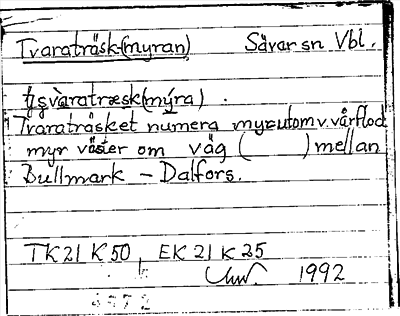 Tvaraträsk-(myran) Sävar sn Vbl.
tvàratræsk(mýra).
Tvaraträsket numera myr utom v. vårflod
myr väster om väg ( ) mellan
Bullmark – Dalfors.
TK 21 K 50, EK 21 K 25
1992
4972